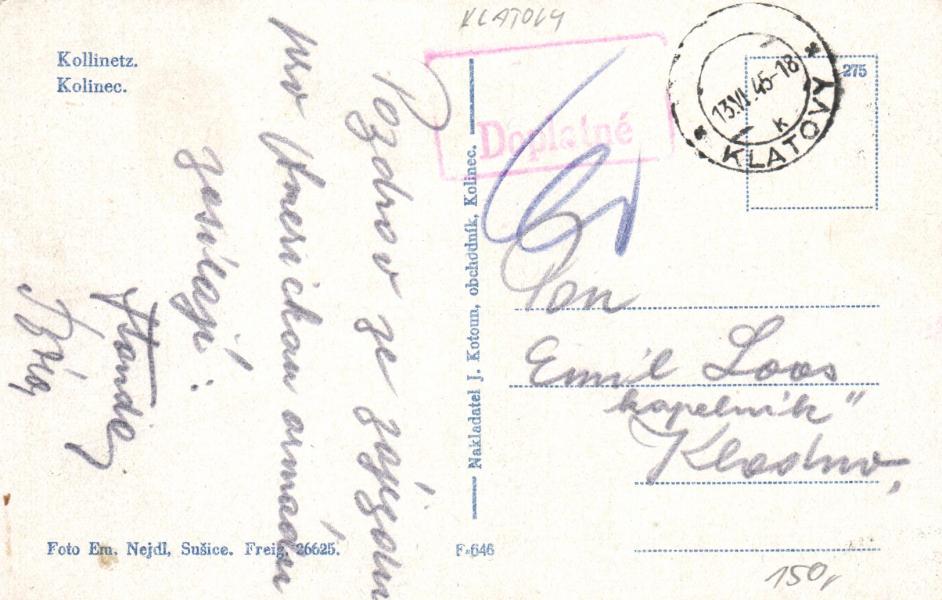 KLATOVY
Kollinetz.
Kolinec.
275
13.VI.45-18
k
* KLATOVY *
Doplatné
Pozdrav ze zájezdu
pro Americkou armádu
zasílají:
Nakladatel J. Kotoun, obchodník, Kolinec.
Pan
Emil Loos
kapelník"
Kladno,
Foto Em. Nejdl, Sušice. Freig. 26625.
F-646
150,